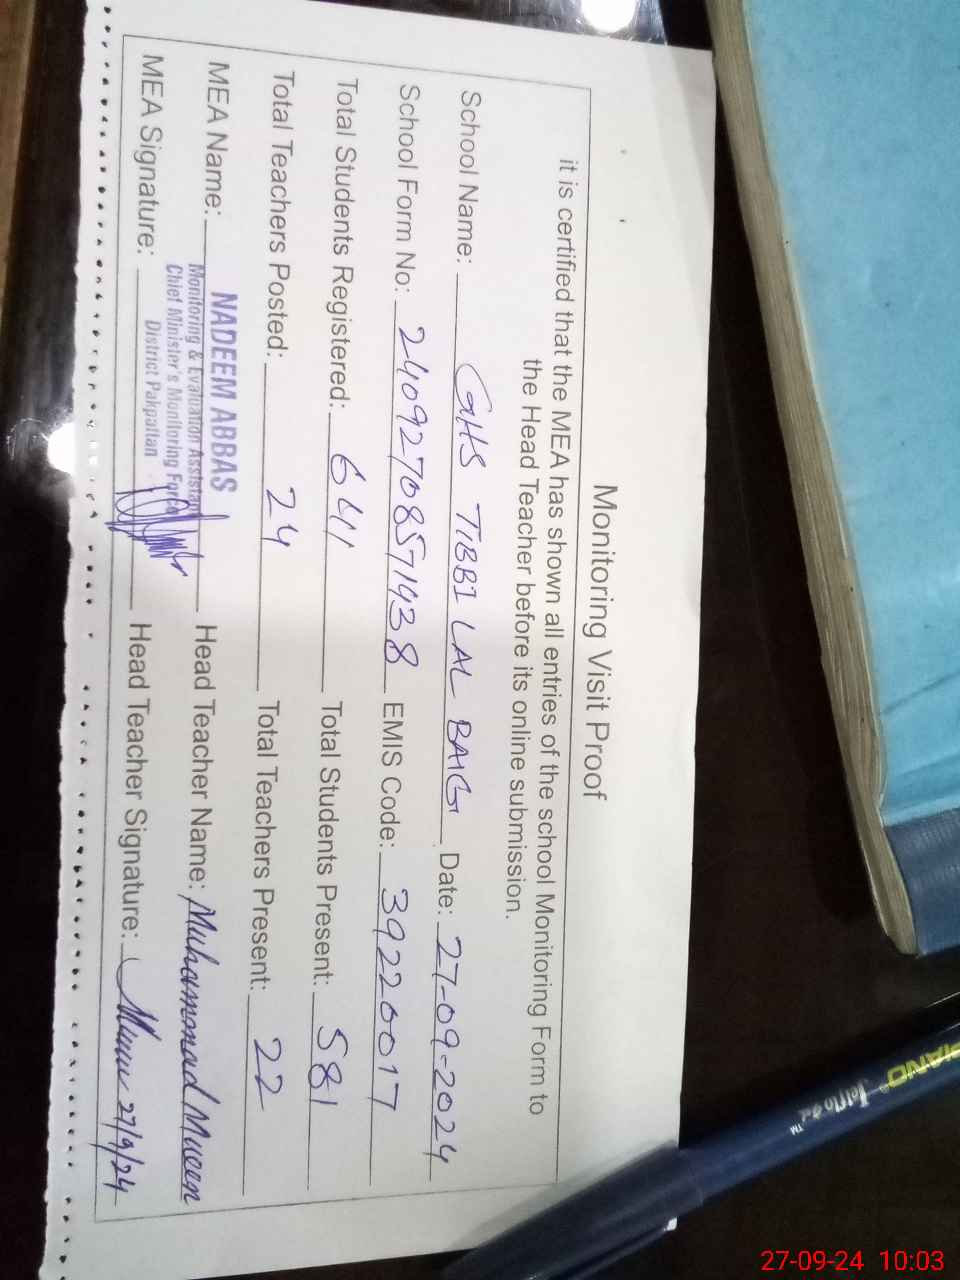 Monitoring Visit Proof
it is certified that the MEA has shown all entries of the school Monitoring Form to
the Head Teacher before its online submission.
School Name: GHS TIBBI LAL BAIG Date: 27-09-2024
School Form No: 24092708571438 EMIS Code: 39220017
Total Students Registered: 641 Total Students Present: 581
Total Teachers Posted: 24 Total Teachers Present: 22
MEA Name: NADEEM ABBAS Head Teacher Name: Muhammad Mueen
Monitoring & Evaluation Assistant
Chief Minister's Monitoring Force
District Pakpattan
MEA Signature: Head Teacher Signature: 27/9/24
PIANO
27-09-24 10:03